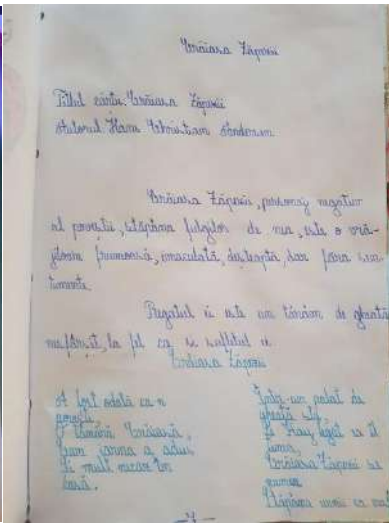 Crăiasa Zăpezii
Titlul cărții: Crăiasa Zăpezii
Autorul: Hans Christian Andersen
Crăiasa Zăpezii, personaj negativ
al poveștii, stăpâna fulgilor de nea, este o vră-
jitoare frumoasă, imaculată, deșteaptă, dar fără sen-
timente.
Regatul ei este un tărâm de gheață
nesfârșit, la fel ca și sufletul ei.
Crăiasa Zăpezii
A fost odată ca-n
povești,
O tânără Crăiasă,
Cum iarna a adus
Și mult necaz în
casă.
Într-un palat de
gheață
Și Kay legat ca el
Crăiasa Zăpezii se
numea
Stăpâna
4